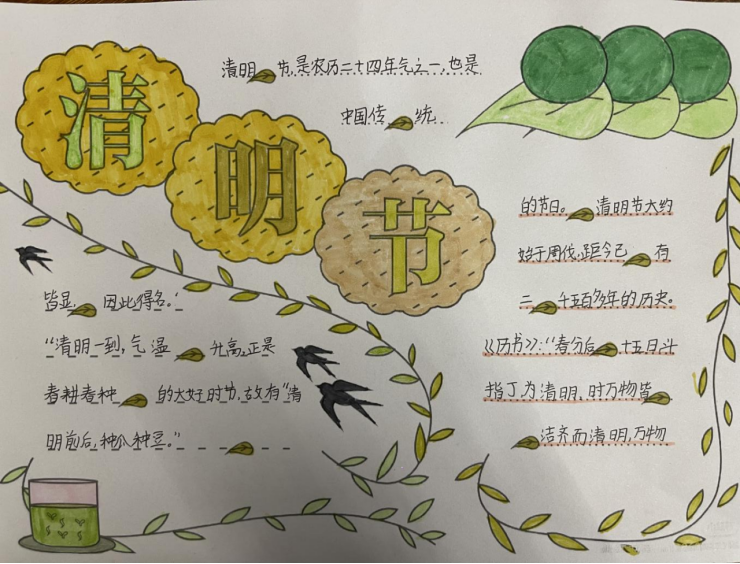 清明节
清明节,是农历二十四年气之一,也是
中国传统
的节日。清明节大约
始于周代,距今已有
二千五百多年的历史。
《历书》:“春分后十五日斗
指丁为清明,时万物皆
洁齐而清明,万物
皆显,因此得名。”
“清明一到,气温升高,正是
春耕春种的大好时节,故有“清
明前后,种瓜种豆。”